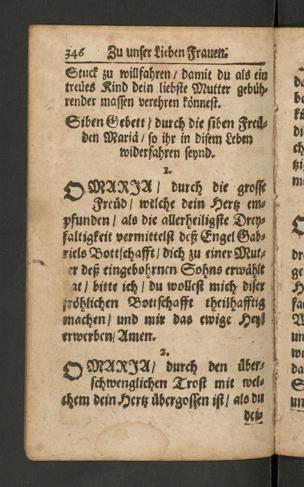 346 Zu unser Lieben Frauen.
Stuck zu willfahren / damit du als ein
treües Kind dein liebste Mutter gebüh-
render massen verehren könnest.
Siben Gebett / durch die siben Freü-
den Mariä / so ihr in disem Leben
widerfahren seynd.
1.
O MARIA / durch die grosse
Freüd / welche dein Hertz em-
pfunden / als die allerheiligste Drey-
faltigkeit vermittelst deß Engel Gab-
riels Bottschafft / dich zu einer Mut-
er deß eingebohrnen Sohns erwählt
at / bitte ich / du wollest mich diser
fröhlichen Bottschafft theilhafftig
machen / und mir das ewige Heyl
erwerben / Amen.
2.
O MARIA / durch den über-
schwenglichen Trost mit wel-
chem dein Hertz übergossen ist / als du